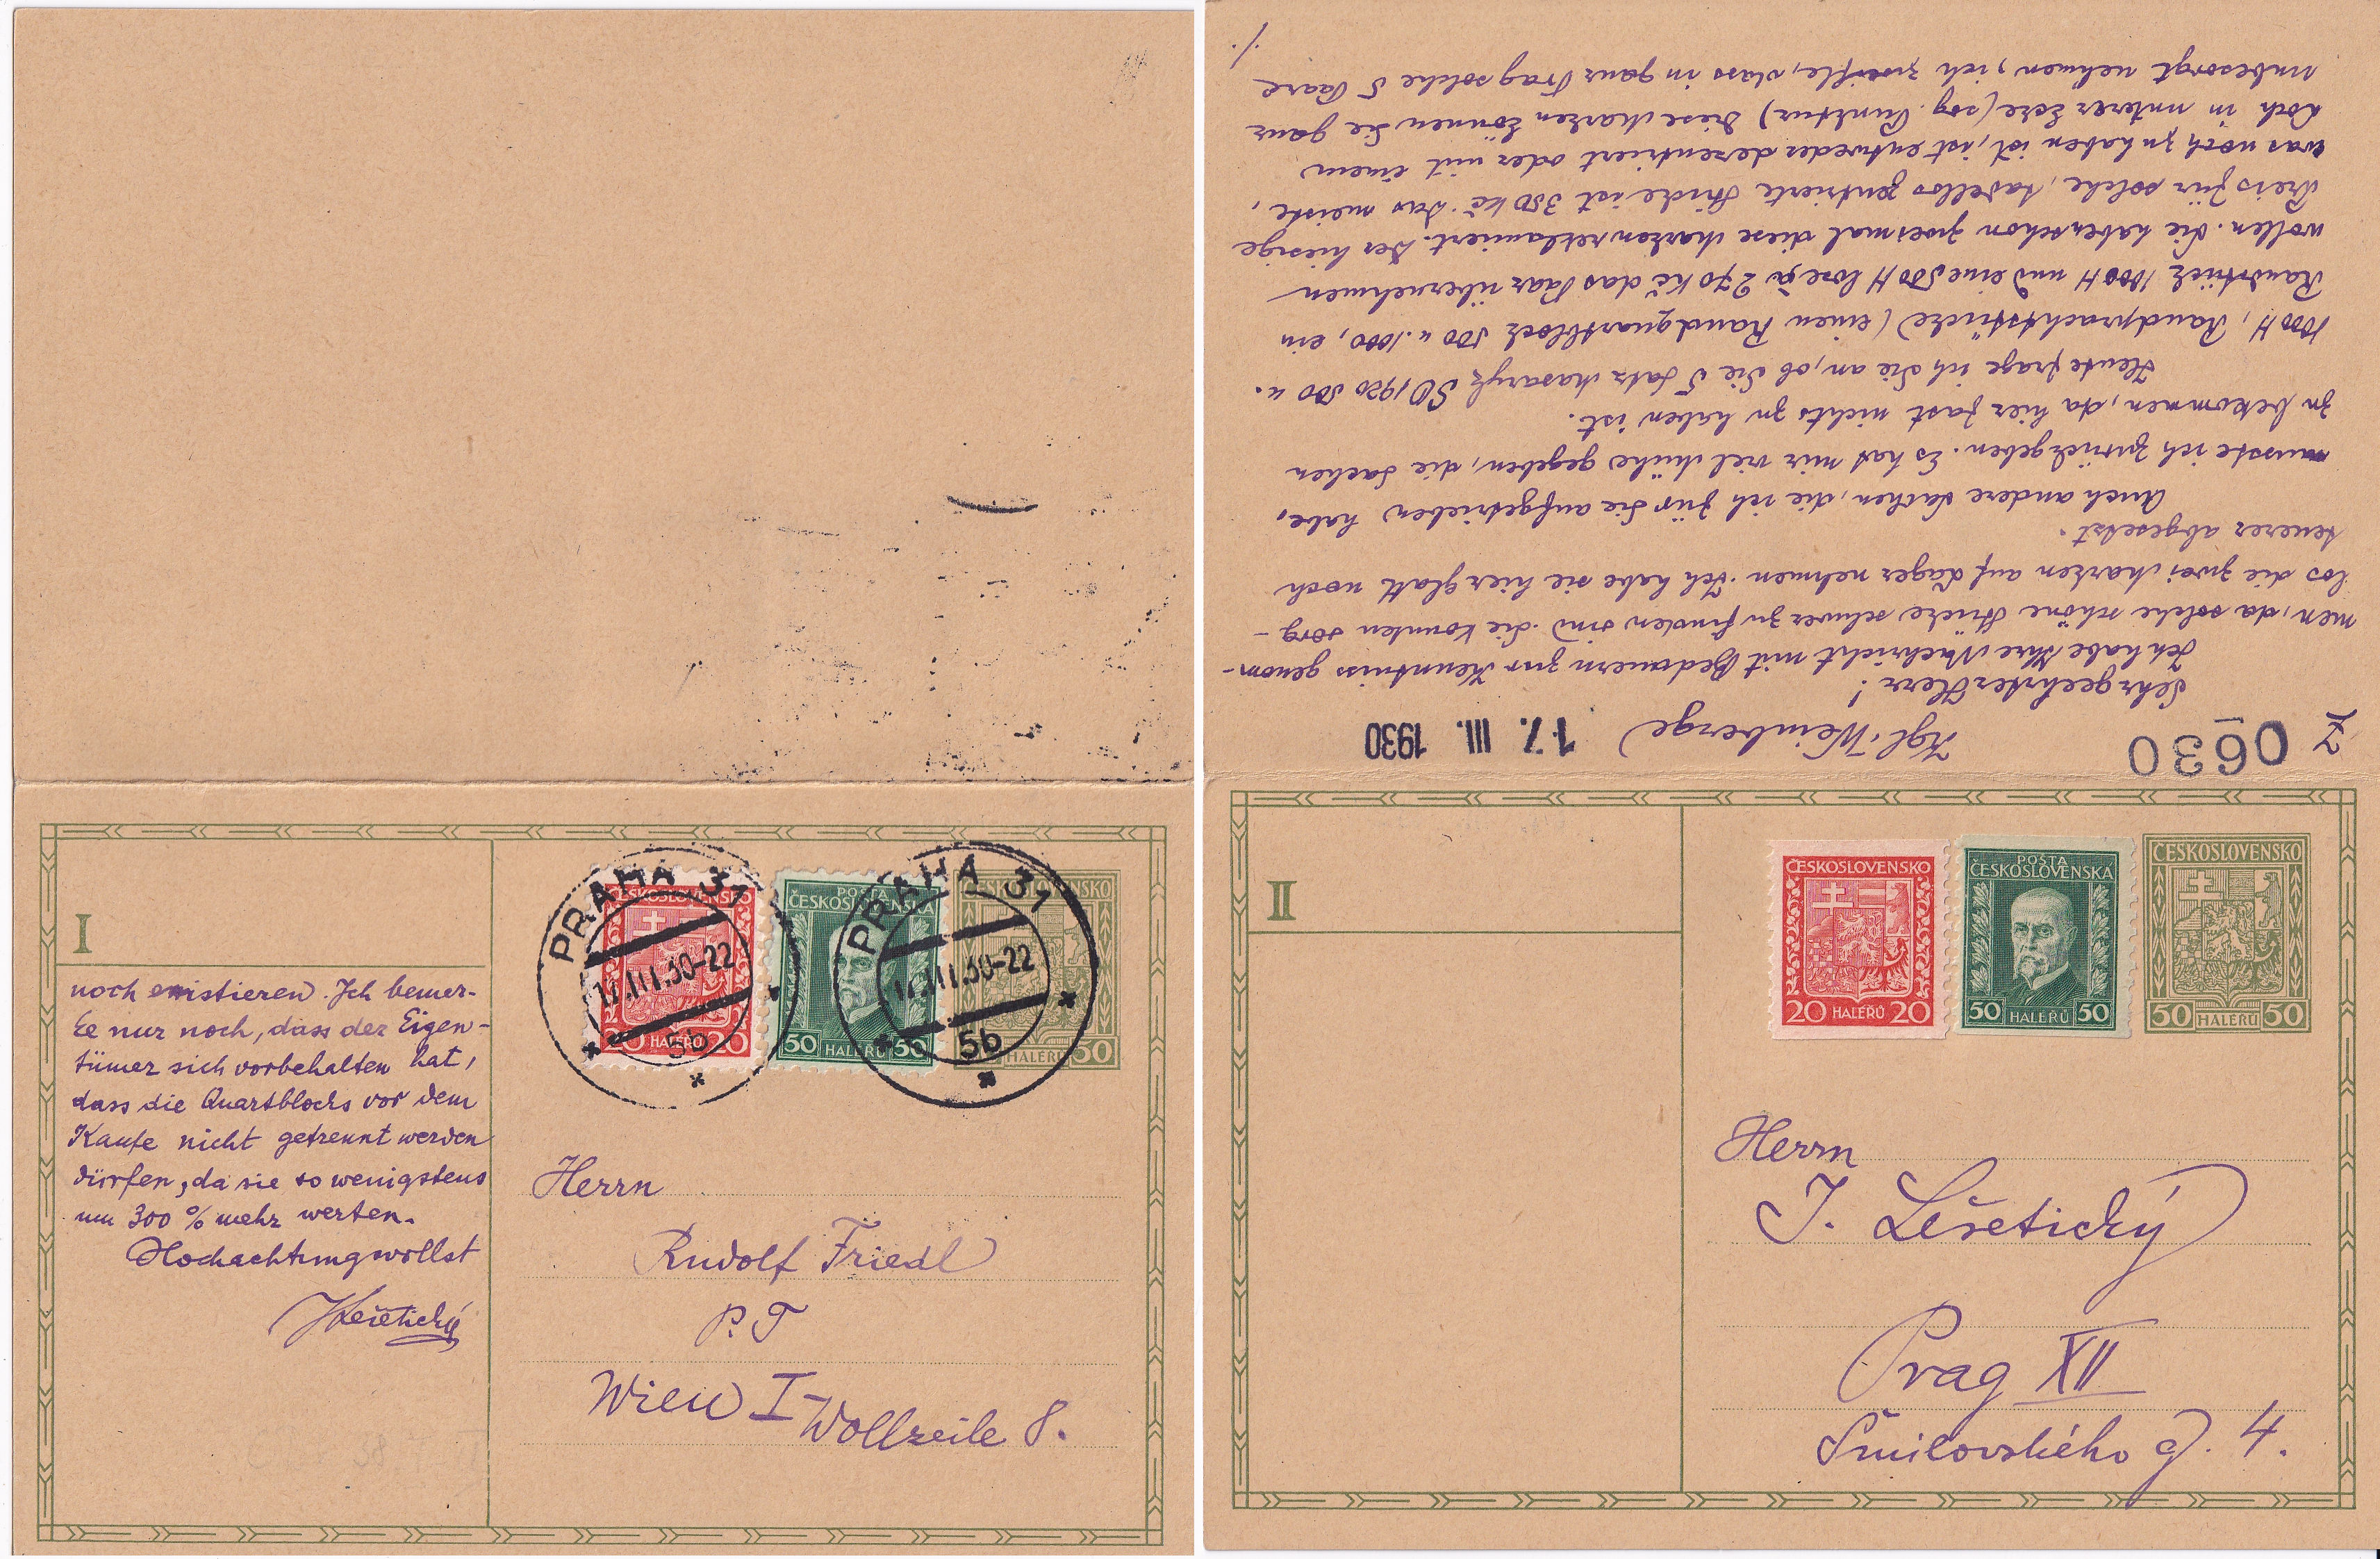 Z 0630
Kgl. Weinberge 17. III. 1930
Sehr geehrter Herr!
Ich habe Ihre Nachricht mit Bedauern zur Kenntniss genom-
men, da solche schöne Stücke schwer zu finden sind. Sie konnten sorg-
los die zwei Marken auf Lager nehmen. Ich habe sie hier glatt noch
teuerer abgesetzt.
Auch andere Sachen, die ich für Sie aufgetrieben habe,
musste ich zurückgeben. Es hat mir viel Mühe gegeben, die Sachen
zu bekommen, da hier fast nichts zu haben ist.
Heute frage ich Sie an, ob Sie 5 Satz Masaryk SO 1920 500 u.
1000 H, Randprachtstücke (einen Randquartblock 500 u. 1000, ein
Randstück 1000 H und eine 500 H lose à 270 Kč das Paar übernehmen
wollen. Sie haben schon zweimal diese Marken reklamiert. Der hiesige
Preis für solche, tadellos zentrierte Stücke ist 350 Kč. Das meiste,
was noch zu haben ist, ist entweder dezentriert oder mit einem
Loch in unterer Ecke (sog. Punktur) Diese Marken können Sie ganz
unbesorgt nehmen, ich zweifle, dass in ganz Prag solche 5 Paare
./.
I
noch existieren. Ich bemer-
ke nur noch, dass der Eigen-
tümer sich vorbehalten hat,
dass die Quartblocks vor dem
Kaufe nicht getrennt werden
dürfen, da sie so wenigstens
um 300 % mehr werten.
Hochachtungsvollst
JLešetický
ČESKOSLOVENSKO
20 HALÉŘŮ 20
POŠTA
ČESKOSLOVENSKA
50 HALÉŘŮ 50
ČESKOSLOVENSKO
HALÉŘŮ 50
PRAHA 31
.III.30-22
5b
PRAHA 31
.III.30-22
5b
Herrn
Rudolf Friedl
P.T
Wien I
Wollzeile 8.
II
ČESKOSLOVENSKO
20 HALÉŘŮ 20
POŠTA
ČESKOSLOVENSKA
50 HALÉŘŮ 50
ČESKOSLOVENSKO
50 HALÉŘŮ 50
Herrn
J. Lešetický
Prag XII
Šmilovského g. 4.